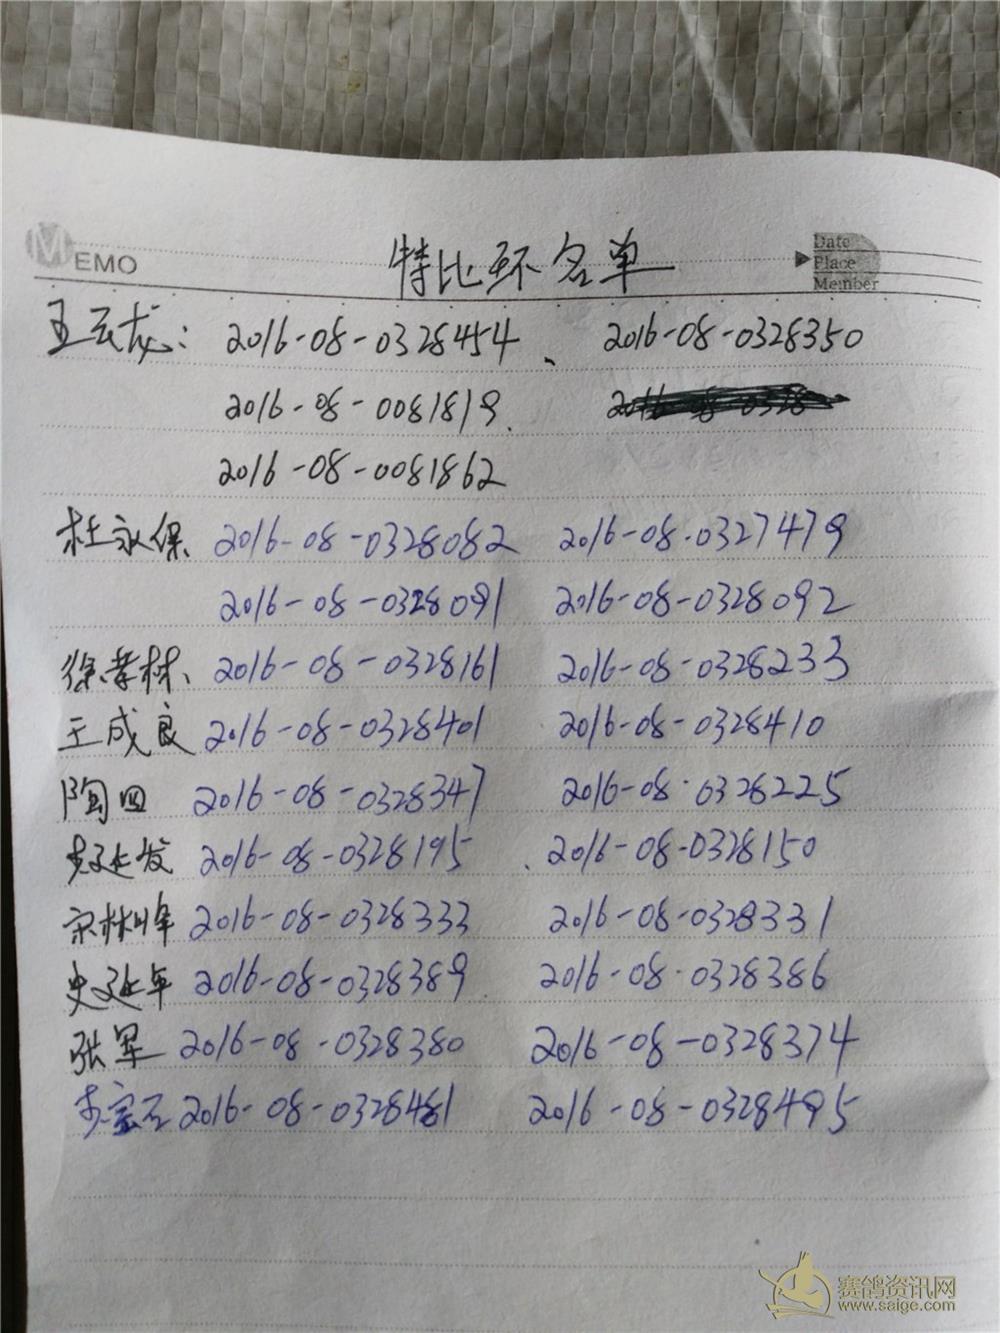 MEMO
特比环名单
Date
Place
Member
王云龙: 2016-08-0328454、 2016-08-0328350
2016-08-0081819.
2016-08-0081862
杜永保 2016-08-0328082 2016-08-0327479
2016-08-0328091 2016-08-0328092
徐孝林、 2016-08-0328161 2016-08-0328233
王成良 2016-08-0328401 2016-08-0328410
陶四 2016-08-0328347 2016-08-0328225
发 2016-08-0328195 2016-08-0328150
宋林峰 2016-08-0328333 2016-08-0328331
史延年 2016-08-0328389 2016-08-0328386
张军 2016-08-0328380 2016-08-0328374
李宝玉 2016-08-0328481 2016-08-0328495
赛鸽资讯网
www.saige.com